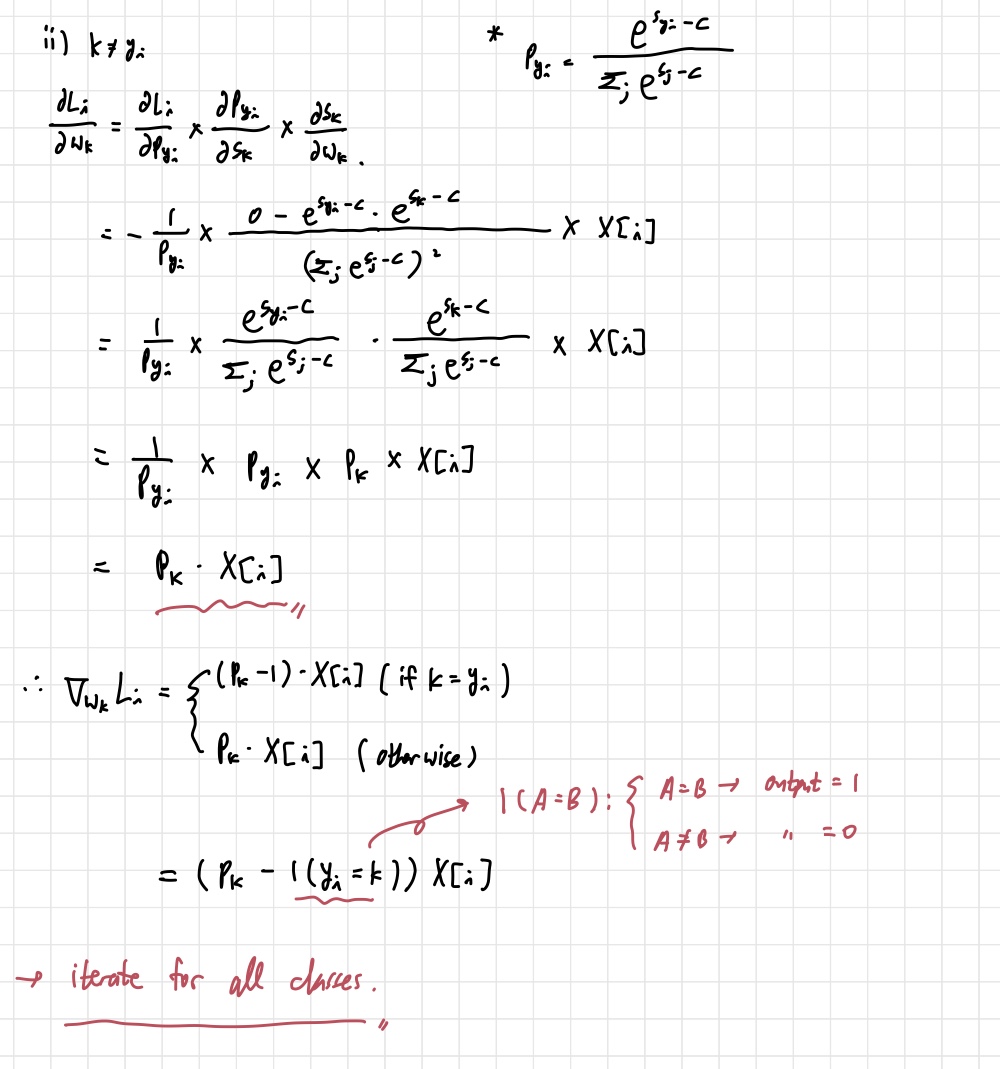 ii) k ≠ yᵢ
* P_yᵢ = e^(s_yᵢ - c) / Σⱼ e^(sⱼ - c)
∂Lᵢ/∂Wₖ = ∂Lᵢ/∂P_yᵢ × ∂P_yᵢ/∂sₖ × ∂sₖ/∂Wₖ .
= - 1/P_yᵢ × (0 - e^(s_yᵢ - c) · e^(sₖ - c)) / (Σⱼ e^(sⱼ - c))² × X[i]
= 1/P_yᵢ × e^(s_yᵢ - c) / Σⱼ e^(sⱼ - c) · e^(sₖ - c) / Σⱼ e^(sⱼ - c) × X[i]
= 1/P_yᵢ × P_yᵢ × Pₖ × X[i]
= Pₖ · X[i] 〃
∴ ∇_Wₖ Lᵢ = { (Pₖ - 1) · X[i] (if k = yᵢ)
Pₖ · X[i] (otherwise)
1(A=B) : { A=B → output = 1
A≠B → 〃 = 0
= (Pₖ - 1(yᵢ = k)) X[i]
→ iterate for all classes. 〃